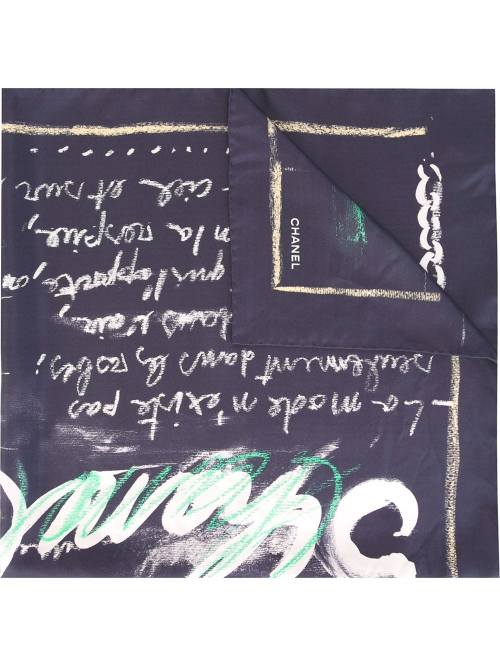 La mode n'existe pas
seulement dans les robes;
dans l'air,
qui l'apporte, on
n la respire,
ciel et sur
CHANEL